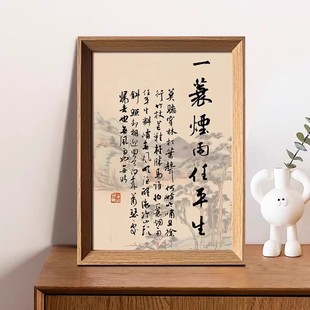 一蓑煙雨任平生
莫聽穿林打葉聲何妨吟嘯且徐
行竹杖芒鞋輕勝馬誰怕一蓑煙雨
任平生料峭春風吹酒醒微冷山頭
斜照卻相迎回首向來蕭瑟處
歸去也無風雨也無晴